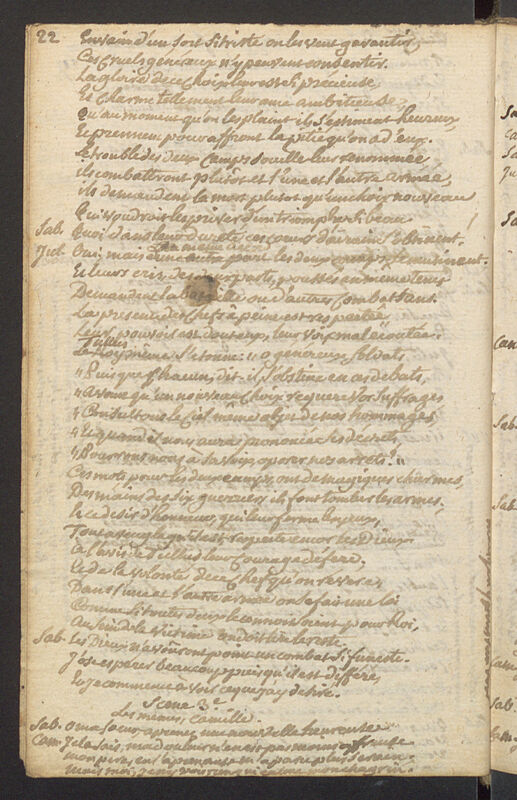 22 En vain d'un sort si triste on les veut garantir,
Ces cruels généraux n'y peuvent consentir.
La gloire de ce choix leur est si précieuse,
Et charme tellement leur ame ambitieuse,
Qu'au moment qu'on les plaint ils s'estiment heureux,
Et prennent pour affront la pitié qu'on a d'eux.
Le trouble des deux camps souille leur renommée
ils combattront plutôt et l'une et l'autre armée,
ils demandent la mort plutot qu'un choix nouveau
Qui voudroit les priver d'un triomphe si beau
Sab. Quoi dans leur dureté ces coeurs d'airain s'obstinent!
Jul. Oui, mais d'une autre part les deux camps se mutinent.
Et leurs cris des deux parts, poussés en meme tems
Demandent la bataille ou d'autres combattans.
La présence des chefs à peine est respectée
Leur pouvoir est douteux, leur voix mal écoutée.
Tullus
Le Roy même s'étonne: " o généreux soldats
" Puisque chacun, dit-il, s'obstine en ces débats,
" Consultons le Ciel même objet de nos hommages
" Et quand il nous aura prononcé ses décrets,
" Pourrons nous à sa voix oposer nos arrets? "
Ces mots pour les deux camps, ont de magiques charmes,
Des mains des six guerriers ils font tomber les armes,
et ce desir d'honneur, qui leur ferme les yeux,
Tout aveugle qu'il est, respecte encor les Dieux
a l'avis de Tullus leur courage défere,
Et de la volonté de ce chef qu'on revere,
Dans l'une et l'autre armée on se fait une loi
Comme si toutes deux le connoissoient pour Roi,
Au sein de la victime on doit lire le reste.
Sab. Les Dieux n'avoueront point un combat si funeste.
J'ose esperer beaucoup puisqu'il est différé,
Et je commence à voir ce que j'ay desiré.
Scene 3e
Les mêmes, Camille.
Sab. o ma soeur, aprenez une nouvelle heureuse
Cam. Je la sais,